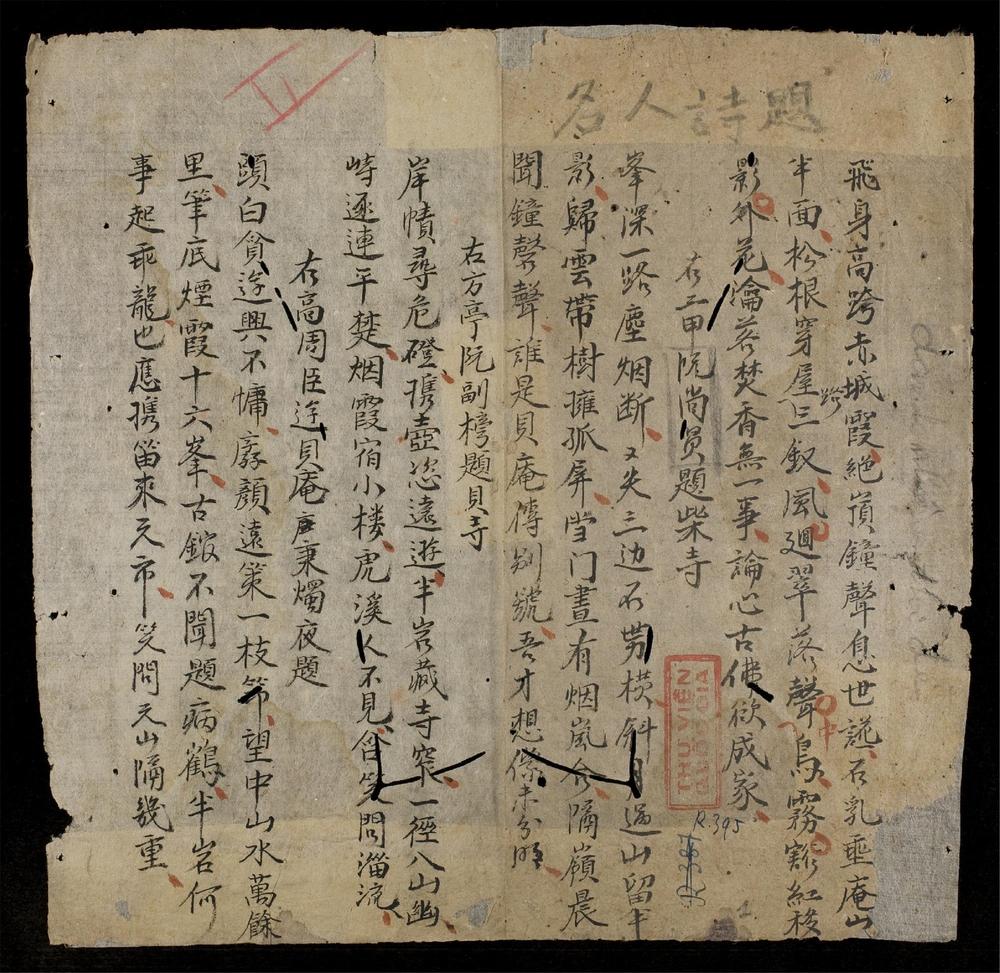 名人詩題
飛身高跨赤城霞絕頂鐘聲息世譁石乳垂庵山
半面松根穿屋跨三釵風迴翠落聲中鳥霧豁紅移
影外花瀹茗焚香無一事論心古佛欲成家
右三甲阮尚賢題柴寺
峯深一路塵烟断又失三边石勢横斜月過山留半
影歸雲帶樹擁孤屏当门晝有烟嵐合隔嶺晨
聞鐘磬聲誰是貝庵傳别號吾才想像未分明
右方亭阮副榜題貝寺
岸幘尋危磴携壺恣遠遊半岩藏寺窄一徑八山幽
峙逐連平楚烟霞宿小楼虎溪人不見含笑問淄流
右高周臣遊貝庵庚秉燭夜題
頭白貧遊興不慵孱顏遠策一枝笻望中山水萬餘
里筆底煙霞十六峯古館不聞題病鶴半岩何
事起乖龍也應携笛来元市笑問元山隔幾重
THU VIEN
QUOC GIA
R.395